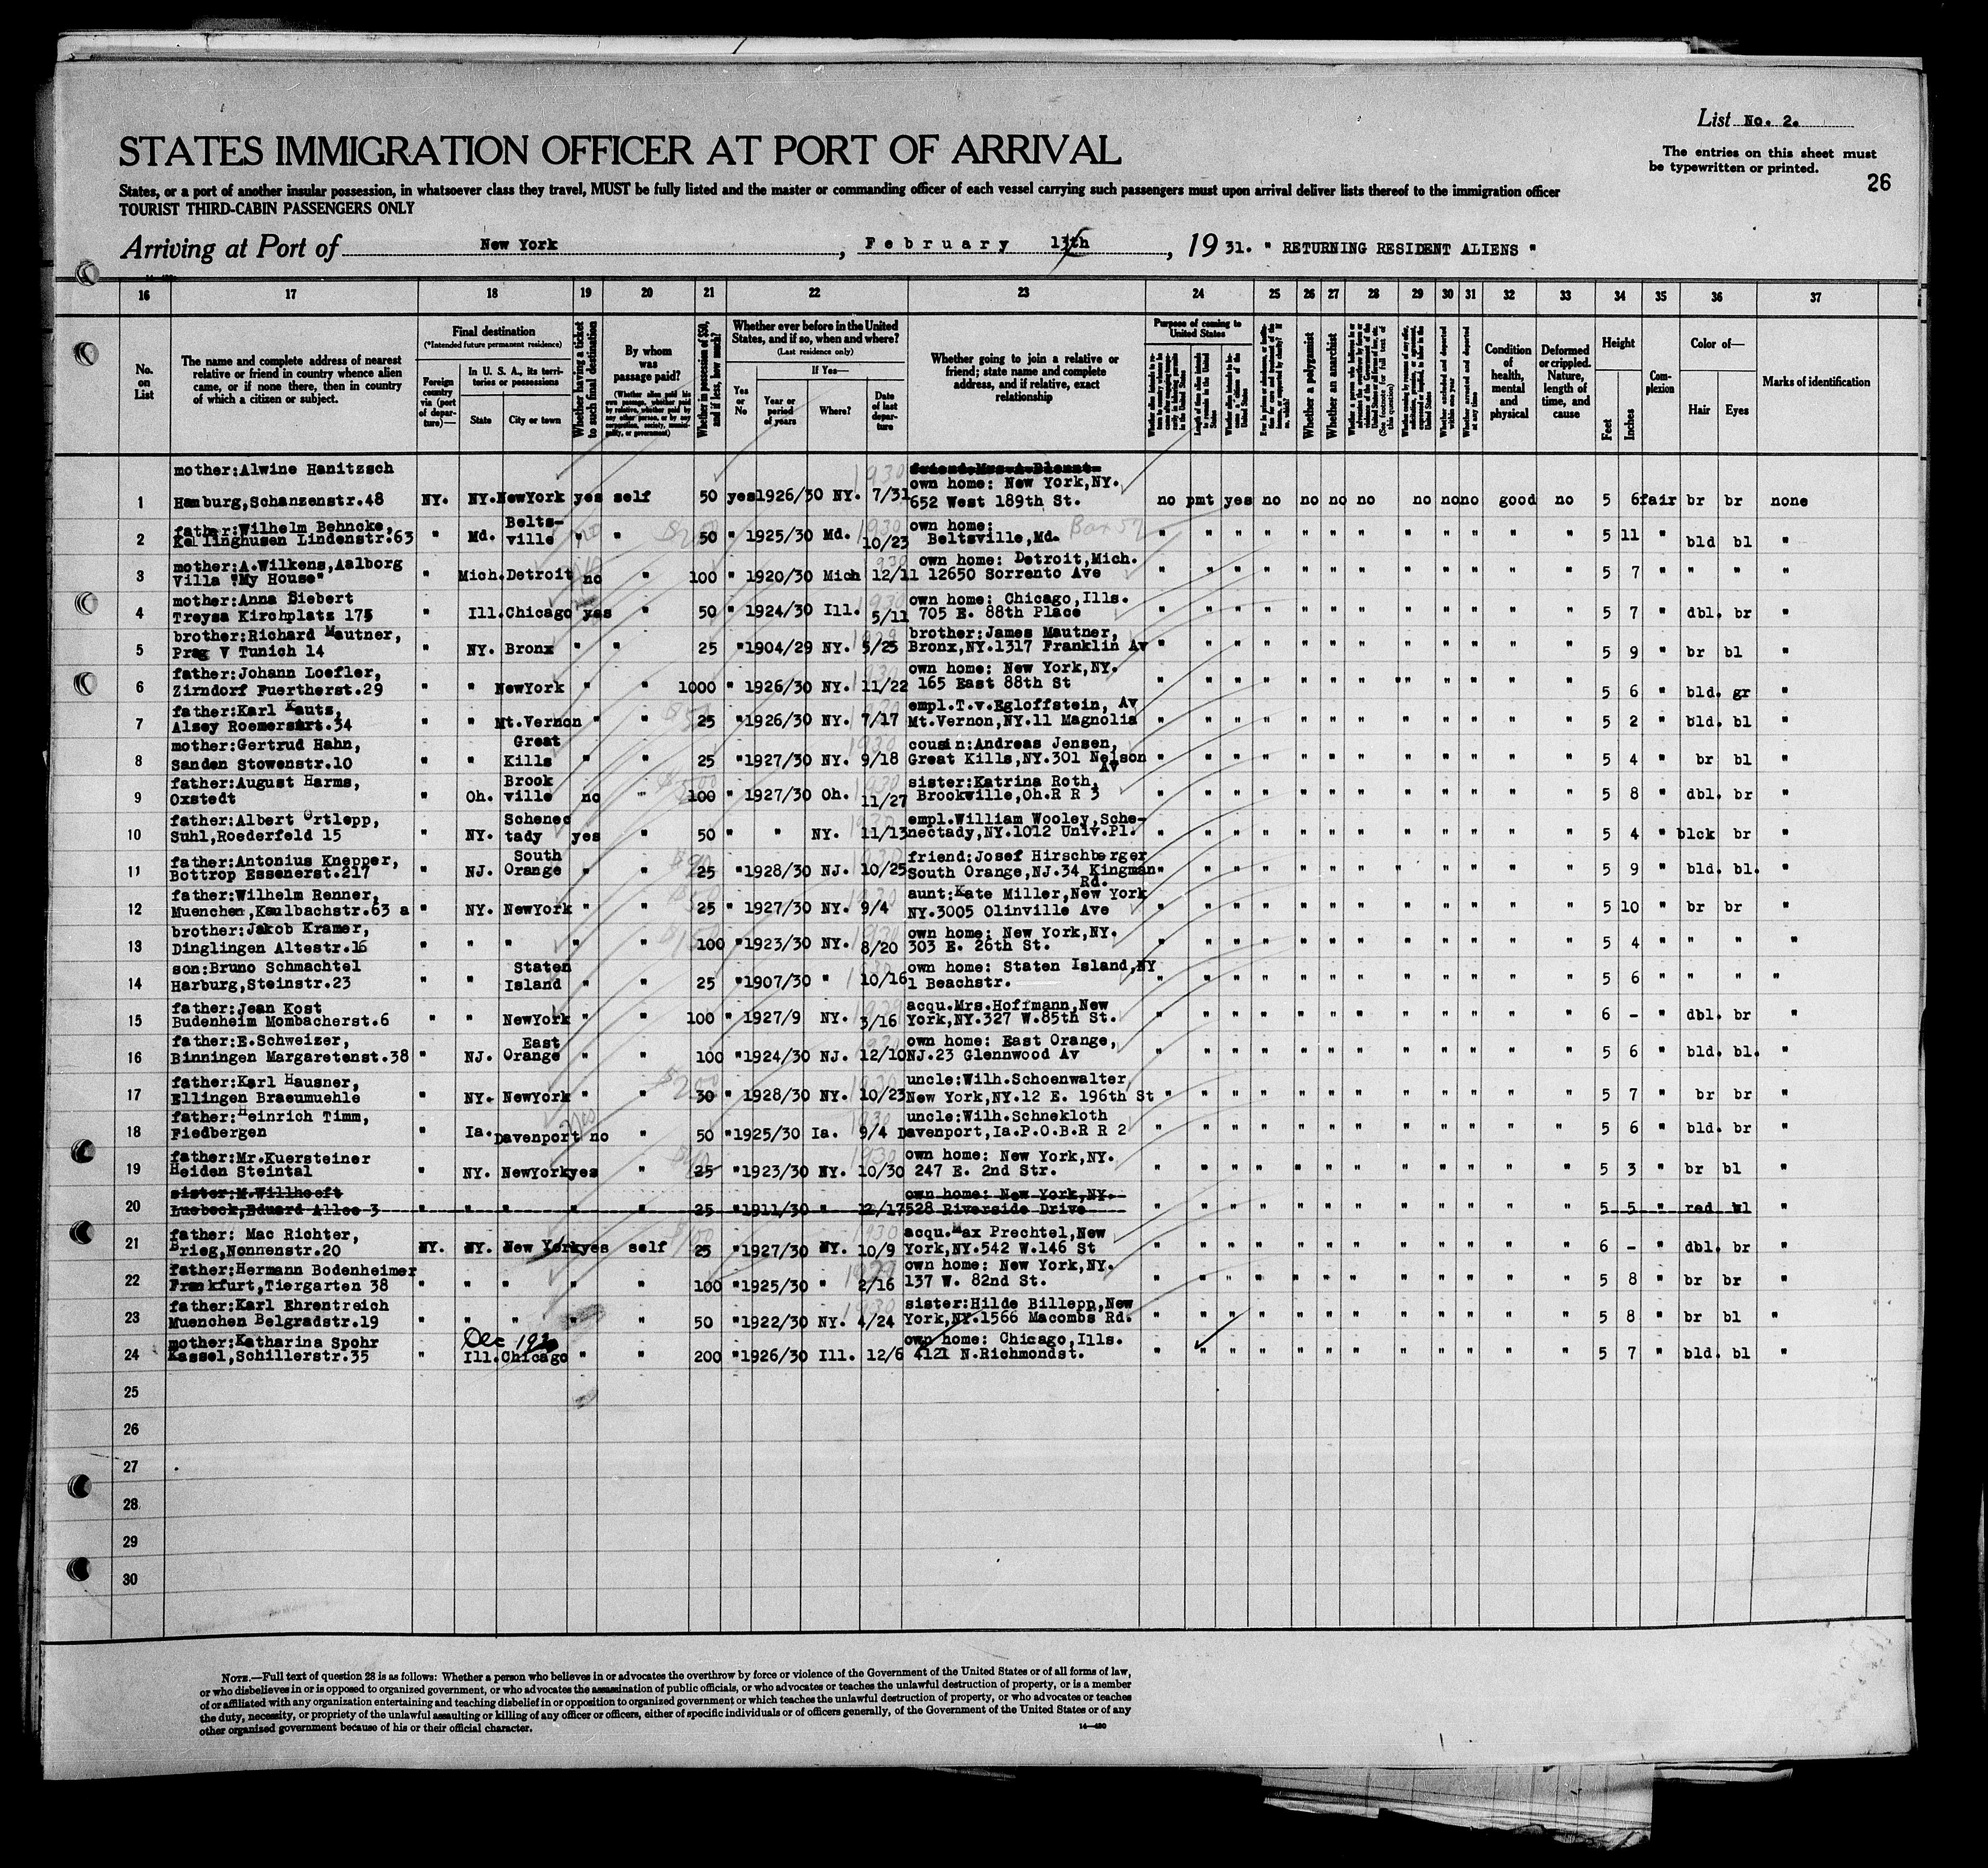 List No. 2.
STATES IMMIGRATION OFFICER AT PORT OF ARRIVAL
The entries on this sheet must
be typewritten or printed.
26
States, or a port of another insular possession, in whatsoever class they travel, MUST be fully listed and the master or commanding officer of each vessel carrying such passengers must upon arrival deliver lists thereof to the immigration officer
TOURIST THIRD-CABIN PASSENGERS ONLY
Arriving at Port of New York, February 13th, 1931. " RETURNING RESIDENT ALIENS "
16 17 18 19 20 21 22 23 24 25 26 27 28 29 30 31 32 33 34 35 36 37
No. on List
The name and complete address of nearest relative or friend in country whence alien came, or if none there, then in country of which a citizen or subject.
Final destination
(*Intended future permanent residence)
Foreign country via (port of departure)—
In U. S. A., its territories or possessions
State
City or town
Whether having a ticket to such final destination
By whom was passage paid?
(Whether alien paid his own passage, whether paid by relative, whether paid by any other person, or by any corporation, society, municipality, or government)
Whether in possession of $50, and if less, how much?
Whether ever before in the United States, and if so, when and where?
(Last residence only)
Yes or No
If Yes—
Year or period of years
Where?
Date of last departure
Whether going to join a relative or friend; state name and complete address, and if relative, exact relationship
Purpose of coming to United States
Whether a polygamist
Whether an anarchist
Condition of health, mental and physical
Deformed or crippled. Nature, length of time, and cause
Height
Feet
Inches
Complexion
Color of—
Hair
Eyes
Marks of identification
mother:Alwine Hanitzsch 1930 own home: New York,NY.
1 Hamburg,Schanzenstr.48 NY. NY. NewYork yes self 50 yes 1926/30 NY. 7/31 652 West 189th St. no pmt yes no no no no no no no good no 5 6 fair br br none
father:Wilhelm Behncke, Belts- 1930 own home: Box 57
2 Kellinghusen Lindenstr.63 " Md. ville " " 50 " 1925/30 Md. 10/23 Beltsville,Md. " " " " " " " " " " " " 5 11 " bld bl "
mother:A.Wilkens,Aalborg own home: Detroit,Mich.
3 Villa "My House" " Mich. Detroit no " 100 " 1920/30 Mich 12/11 12650 Sorrento Ave " " " " " " " " " " " " 5 7 " " " "
mother:Anna Siebert 1930 own home: Chicago,Ills.
4 Treysa Kirchplatz 175 " Ill. Chicago yes " 50 " 1924/30 Ill. 5/11 705 E. 88th Place " " " " " " " " " " " " 5 7 " dbl. br "
brother:Richard Mautner, 1929 brother:James Mautner,
5 Prag V Tunich 14 " NY. Bronx " " 25 " 1904/29 NY. 5/25 Bronx,NY.1317 Franklin Av " " " " " " " " " " " " 5 9 " br bl "
father:Johann Loefler, 1930 own home: New York,NY.
6 Zirndorf Fuertherst.29 " " NewYork " " 1000 " 1926/30 NY. 11/22 165 East 88th St " " " " " " " " " " " " 5 6 " bld. gr "
father:Karl Kauts, empl.T.v.Egloffstein, Av
7 Alsey Roemerstrt.34 " " Mt.Vernon " " 25 " 1926/30 NY. 7/17 Mt.Vernon,NY.11 Magnolia " " " " " " " " " " " " 5 2 " bld. bl "
mother:Gertrud Hahn, Great 1930 cousin:Andreas Jensen,
8 Sanden Stowenstr.10 " " Kills " " 25 " 1927/30 NY. 9/18 Great Kills,NY.301 Nelson Av " " " " " " " " " " " " 5 4 " br bl "
father:August Harms, Brook 1930 sister:Katrina Roth,
9 Oxstedt " Oh. ville no " 100 " 1927/30 Oh. 11/27 Brookville,Oh.R R 3 " " " " " " " " " " " " 5 8 " dbl. br "
father:Albert Ortlepp, Schenec empl.William Wooley,Sche-
10 Suhl,Roederfeld 15 " NY. tady yes " 50 " " NY. 11/13 nectady,NY.1012 Univ.Pl. " " " " " " " " " " " " 5 4 " blck br "
father:Antonius Knepper, South friend:Josef Hirschberger
11 Bottrop Essenerst.217 " NJ. Orange " " 25 " 1928/30 NJ. 10/25 South Orange,NJ.34 Kingman Rd. " " " " " " " " " " " " 5 9 " bld. bl. "
father:Wilhelm Renner, 1930 aunt:Kate Miller,New York
12 Muenchen,Kaulbachstr.63 a " NY. NewYork " " 25 " 1927/30 NY. 9/4 NY.3005 Olinville Ave " " " " " " " " " " " " 5 10 " br br "
brother:Jakob Kramer, 1930 own home: New York,NY.
13 Dinglingen Altestr.16 " " " " " 100 " 1923/30 NY. 8/20 303 E. 26th St. " " " " " " " " " " " " 5 4 " " " "
son:Bruno Schmachtel Staten own home: Staten Island,NY
14 Harburg,Steinstr.23 " " Island " " 25 " 1907/30 " 10/16 1 Beachstr. " " " " " " " " " " " " 5 6 " " " "
father:Jean Kost 1929 acqu.Mrs.Hoffmann,New
15 Budenheim Mombacherst.6 " " NewYork " " 100 " 1927/9 NY. 3/16 York,NY.327 W.85th St. " " " " " " " " " " " " 6 - " dbl. br "
father:E.Schweizer, East own home: East Orange,
16 Binningen Margaretenst.38 " NJ. Orange " " 100 " 1924/30 NJ. 12/10 NJ.23 Glennwood Av " " " " " " " " " " " " 5 6 " bld. bl. "
father:Karl Hausner, $200 1930 uncle:Wilh.Schoenwalter,
17 Ellingen Braeumuehle " NY. NewYork " " 30 " 1928/30 NY. 10/23 New York,NY.12 E. 196th St " " " " " " " " " " " " 5 7 " br br "
father:Heinrich Timm, 1930 uncle:Wilh.Schnekloth
18 Fiedbergen " Ia. Davenport no " 50 " 1925/30 Ia. 9/4 Davenport,Ia.P.O.B.R R 2 " " " " " " " " " " " " 5 6 " bld. br "
father:Mr.Kuersteiner 1930 own home: New York,NY.
19 Heiden Steintal " NY. NewYork yes " 25 " 1923/30 NY. 10/30 247 E. 2nd Str. " " " " " " " " " " " " 5 3 " br bl "
sister:M.Willhoeft own home: New York,NY.
20 Luebeck,Eduard Allee 3 " " " " " 25 " 1911/30 " 12/17 528 Riverside Drive " " " " " " " " " " " " 5 5 " red bl "
father: Mac Richter, 1930 acqu.Max Prechtel,New
21 Brieg,Nonnenstr.20 NY. NY. New York yes self 25 " 1927/30 NY. 10/9 York,NY.542 W.146 St " " " " " " " " " " " " 6 - " dbl. br "
father:Hermann Bodenheimer own home: New York,NY.
22 Frankfurt,Tiergarten 38 " " " " " 100 " 1925/30 " 2/16 137 W. 82nd St. " " " " " " " " " " " " 5 8 " br br "
father:Karl Ehrentreich 1930 sister:Hilde Billepp,New
23 Muenchen Belgradstr.19 " " " " " 50 " 1922/30 NY. 4/24 York,NY.1566 Macombs Rd. " " " " " " " " " " " " 5 8 " br bl "
mother:Katharina Spohr Dec 1930 own home: Chicago,Ills.
24 Kassel,Schillerstr.35 " Ill. Chicago " " 200 " 1926/30 Ill. 12/6 4121 N.Richmondst. " " " " " " " " " " " " 5 7 " bld. bl "
25
26
27
28
29
30
NOTE.—Full text of question 28 is as follows: Whether a person who believes in or advocates the overthrow by force or violence of the Government of the United States or of all forms of law,
or who disbelieves in or is opposed to organized government, or who advocates the assassination of public officials, or who advocates or teaches the unlawful destruction of property, or is a member
of or affiliated with any organization entertaining and teaching disbelief in or opposition to organized government or which teaches the unlawful destruction of property, or who advocates or teaches
the duty, necessity, or propriety of the unlawful assaulting or killing of any officer or officers, either of specific individuals or of officers generally, of the Government of the United States or of any
other organized government because of his or their official character.
14—430